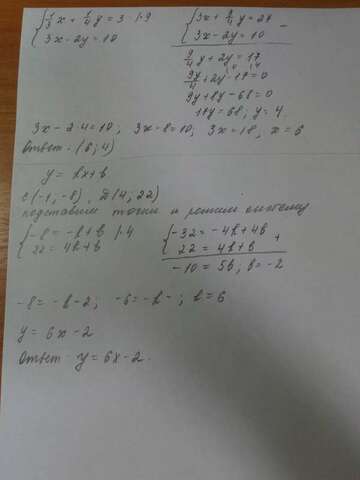 {1/3x + 1/4y = 3 |·9
3x - 2y = 10
{3x + 9/4y = 27 -
3x - 2y = 10
9/4y + 2y = 17
9y/4 + 2y - 17 = 0
9y + 8y - 68 = 0
17y = 68; y = 4
3x - 2·4 = 10; 3x - 8 = 10; 3x = 18; x = 6
Ответ: (6; 4)
y = kx + b
C(-1; -8), D(4; 22)
подставим точки и решим систему
{-8 = -k + b |·4
22 = 4k + b
{-32 = -4k + 4b +
22 = 4k + b
-10 = 5b; b = -2
-8 = -k - 2; -6 = -k; k = 6
y = 6x - 2
Ответ: y = 6x - 2.